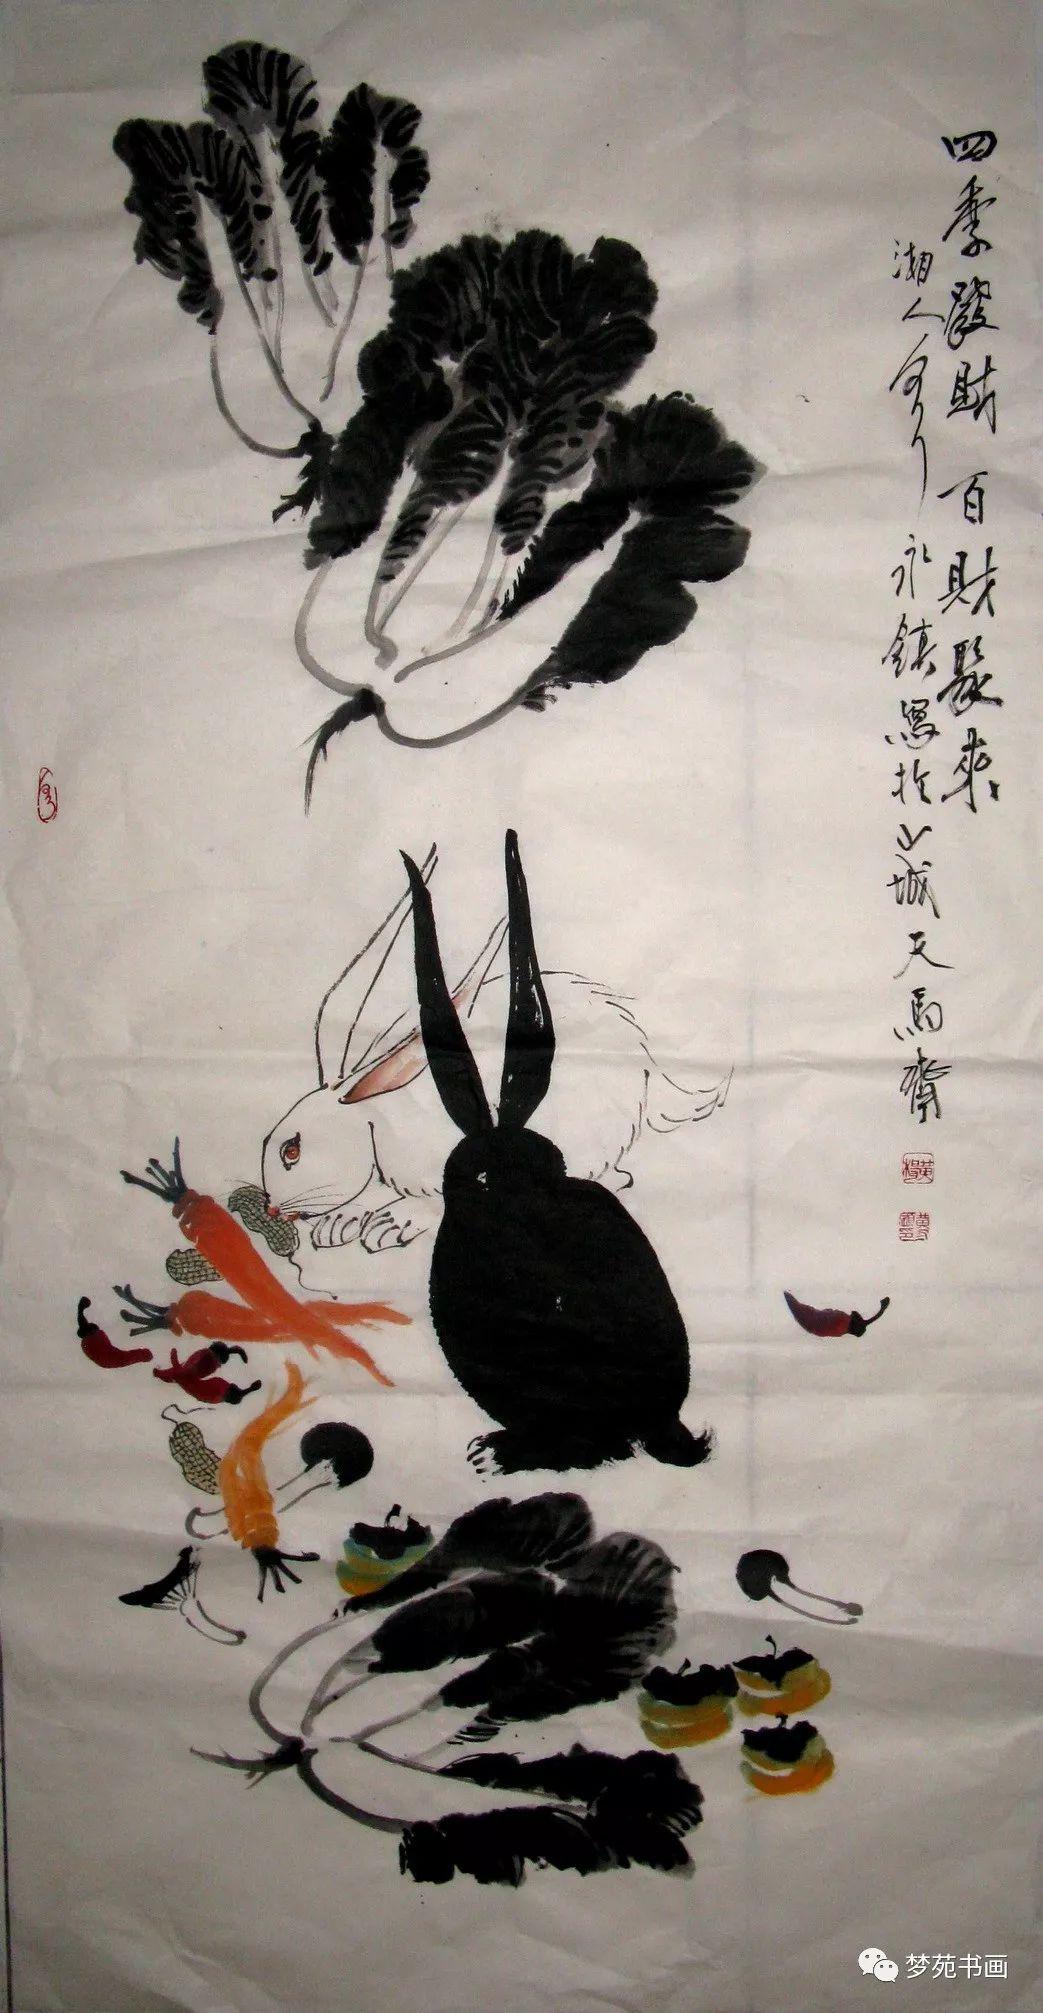 四季發財 百財聚來
湘人 永鎮寫於山城天馬齋
梦苑书画